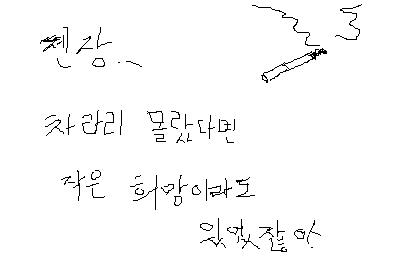 젠장..
차라리 몰랐다면
작은 희망이라도
있었잖아